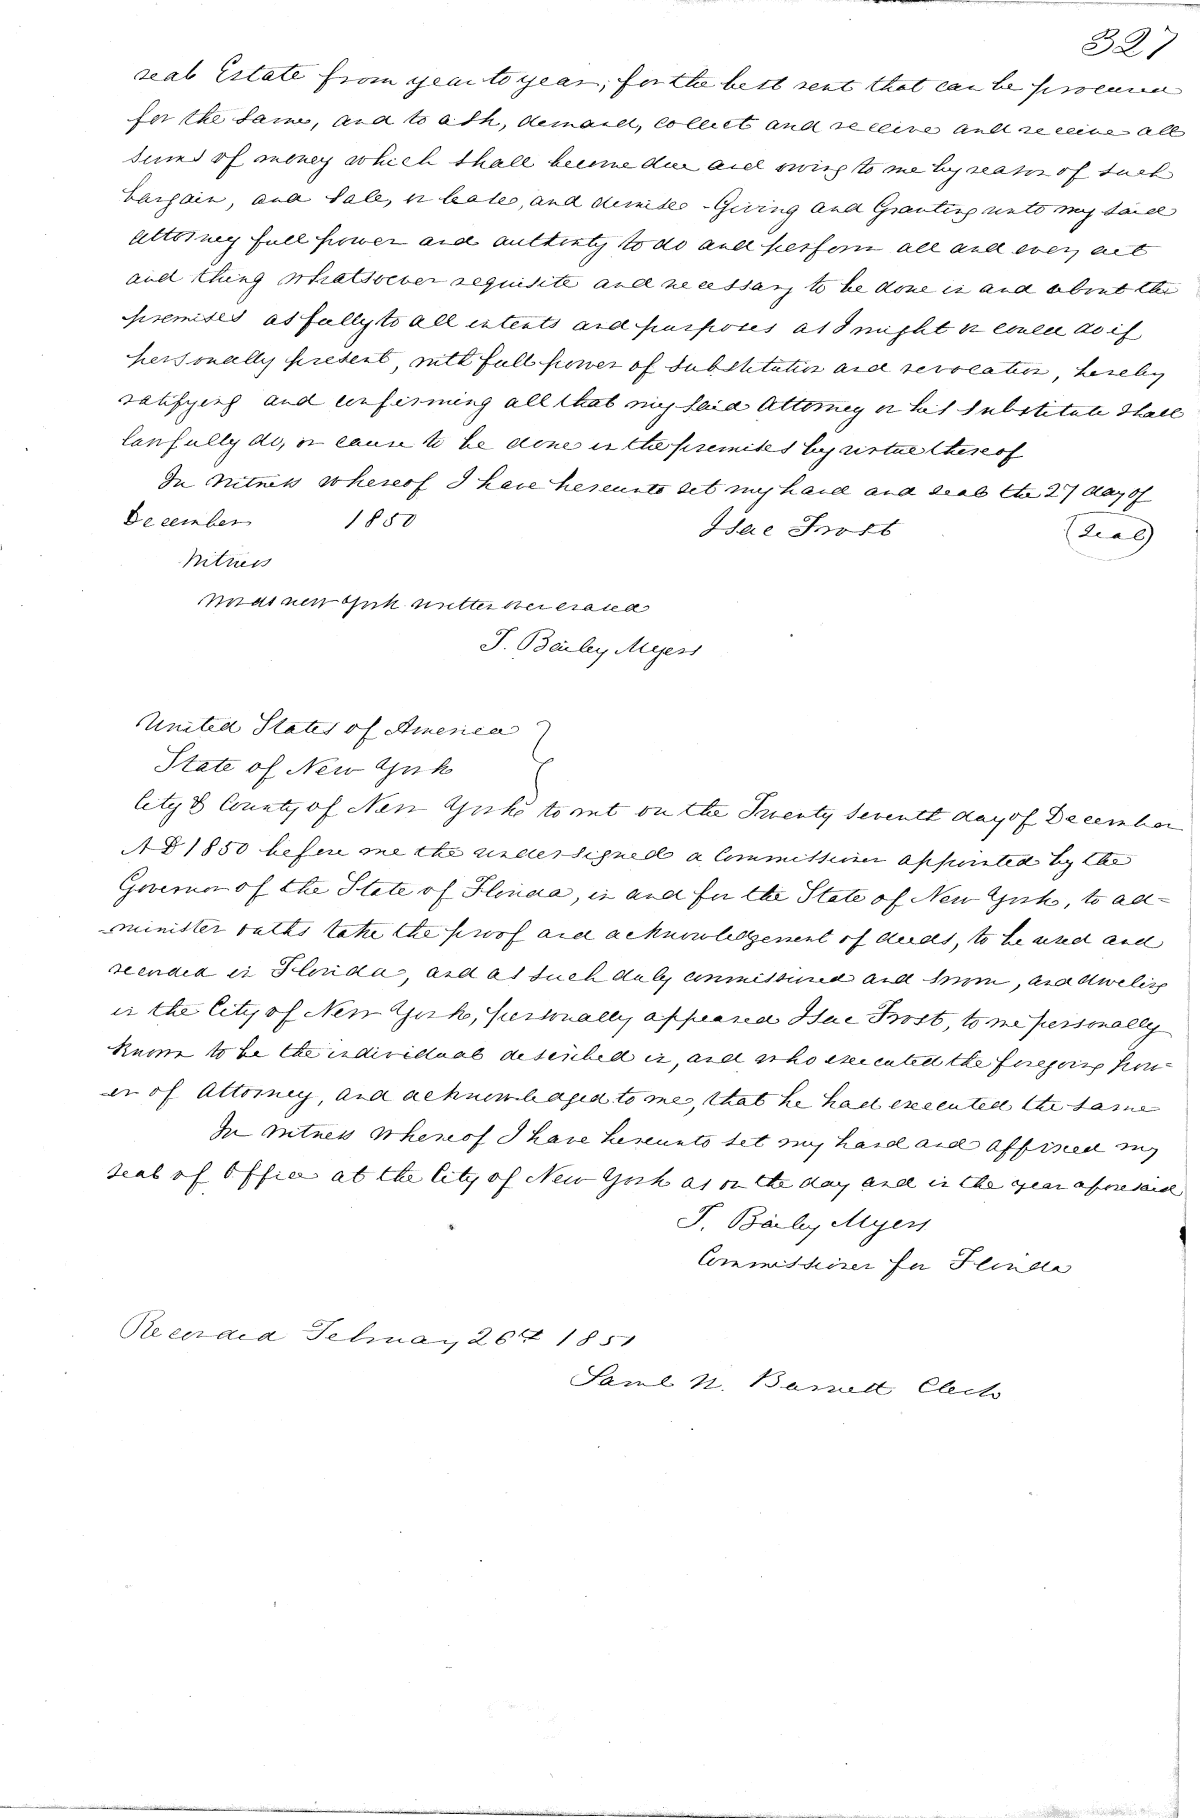 327
real Estate from year to year, for the best rent that can be procured
for the same, and to ask, demand, collect and receive and receive all
sums of money which shall become due and owing to me by reason of such
bargain, and sale, or lease, and demise - Giving and Granting unto my said
attorney full power and authority to do and perform all and every act
and thing whatsoever requisite and necessary to be done in and about the
premises as fully to all intents and purposes as I might or could do if
personally present, with full power of substitution and revocation, hereby
ratifying and confirming all that my said Attorney or his substitute shall
lawfully do, or cause to be done in the premises by virtue thereof
In Witness whereof I have hereunto set my hand and seal the 27 day of
December 1850 Isac Frost (Seal)
Witness
Words new York written over erased
T. Bailey Myers
United States of America
State of New York
City & County of New York to wit on the Twenty Seventh day of December
A D 1850 before me the undersigned a Commissioner appointed by the
Governor of the State of Florida, in and for the State of New York, to ad=
-minister oaths take the proof and acknowledgement of deeds, to be used and
recorded in Florida, and as such duly commissioned and sworn, and dweling
in the City of New York, personally appeared Isac Frost, to me personally
known to be the individual described in, and who executed the foregoing pow=
-er of Attorney, and acknowledged to me, that he had executed the same
In Witness whereof I have hereunto set my hand and affixed my
seal of Office at the City of New York as on the day and in the year aforesaid
T. Bailey Myers
Commissioner for Florida
Recorded February 26th 1851
Saml N. Burnett Clerk